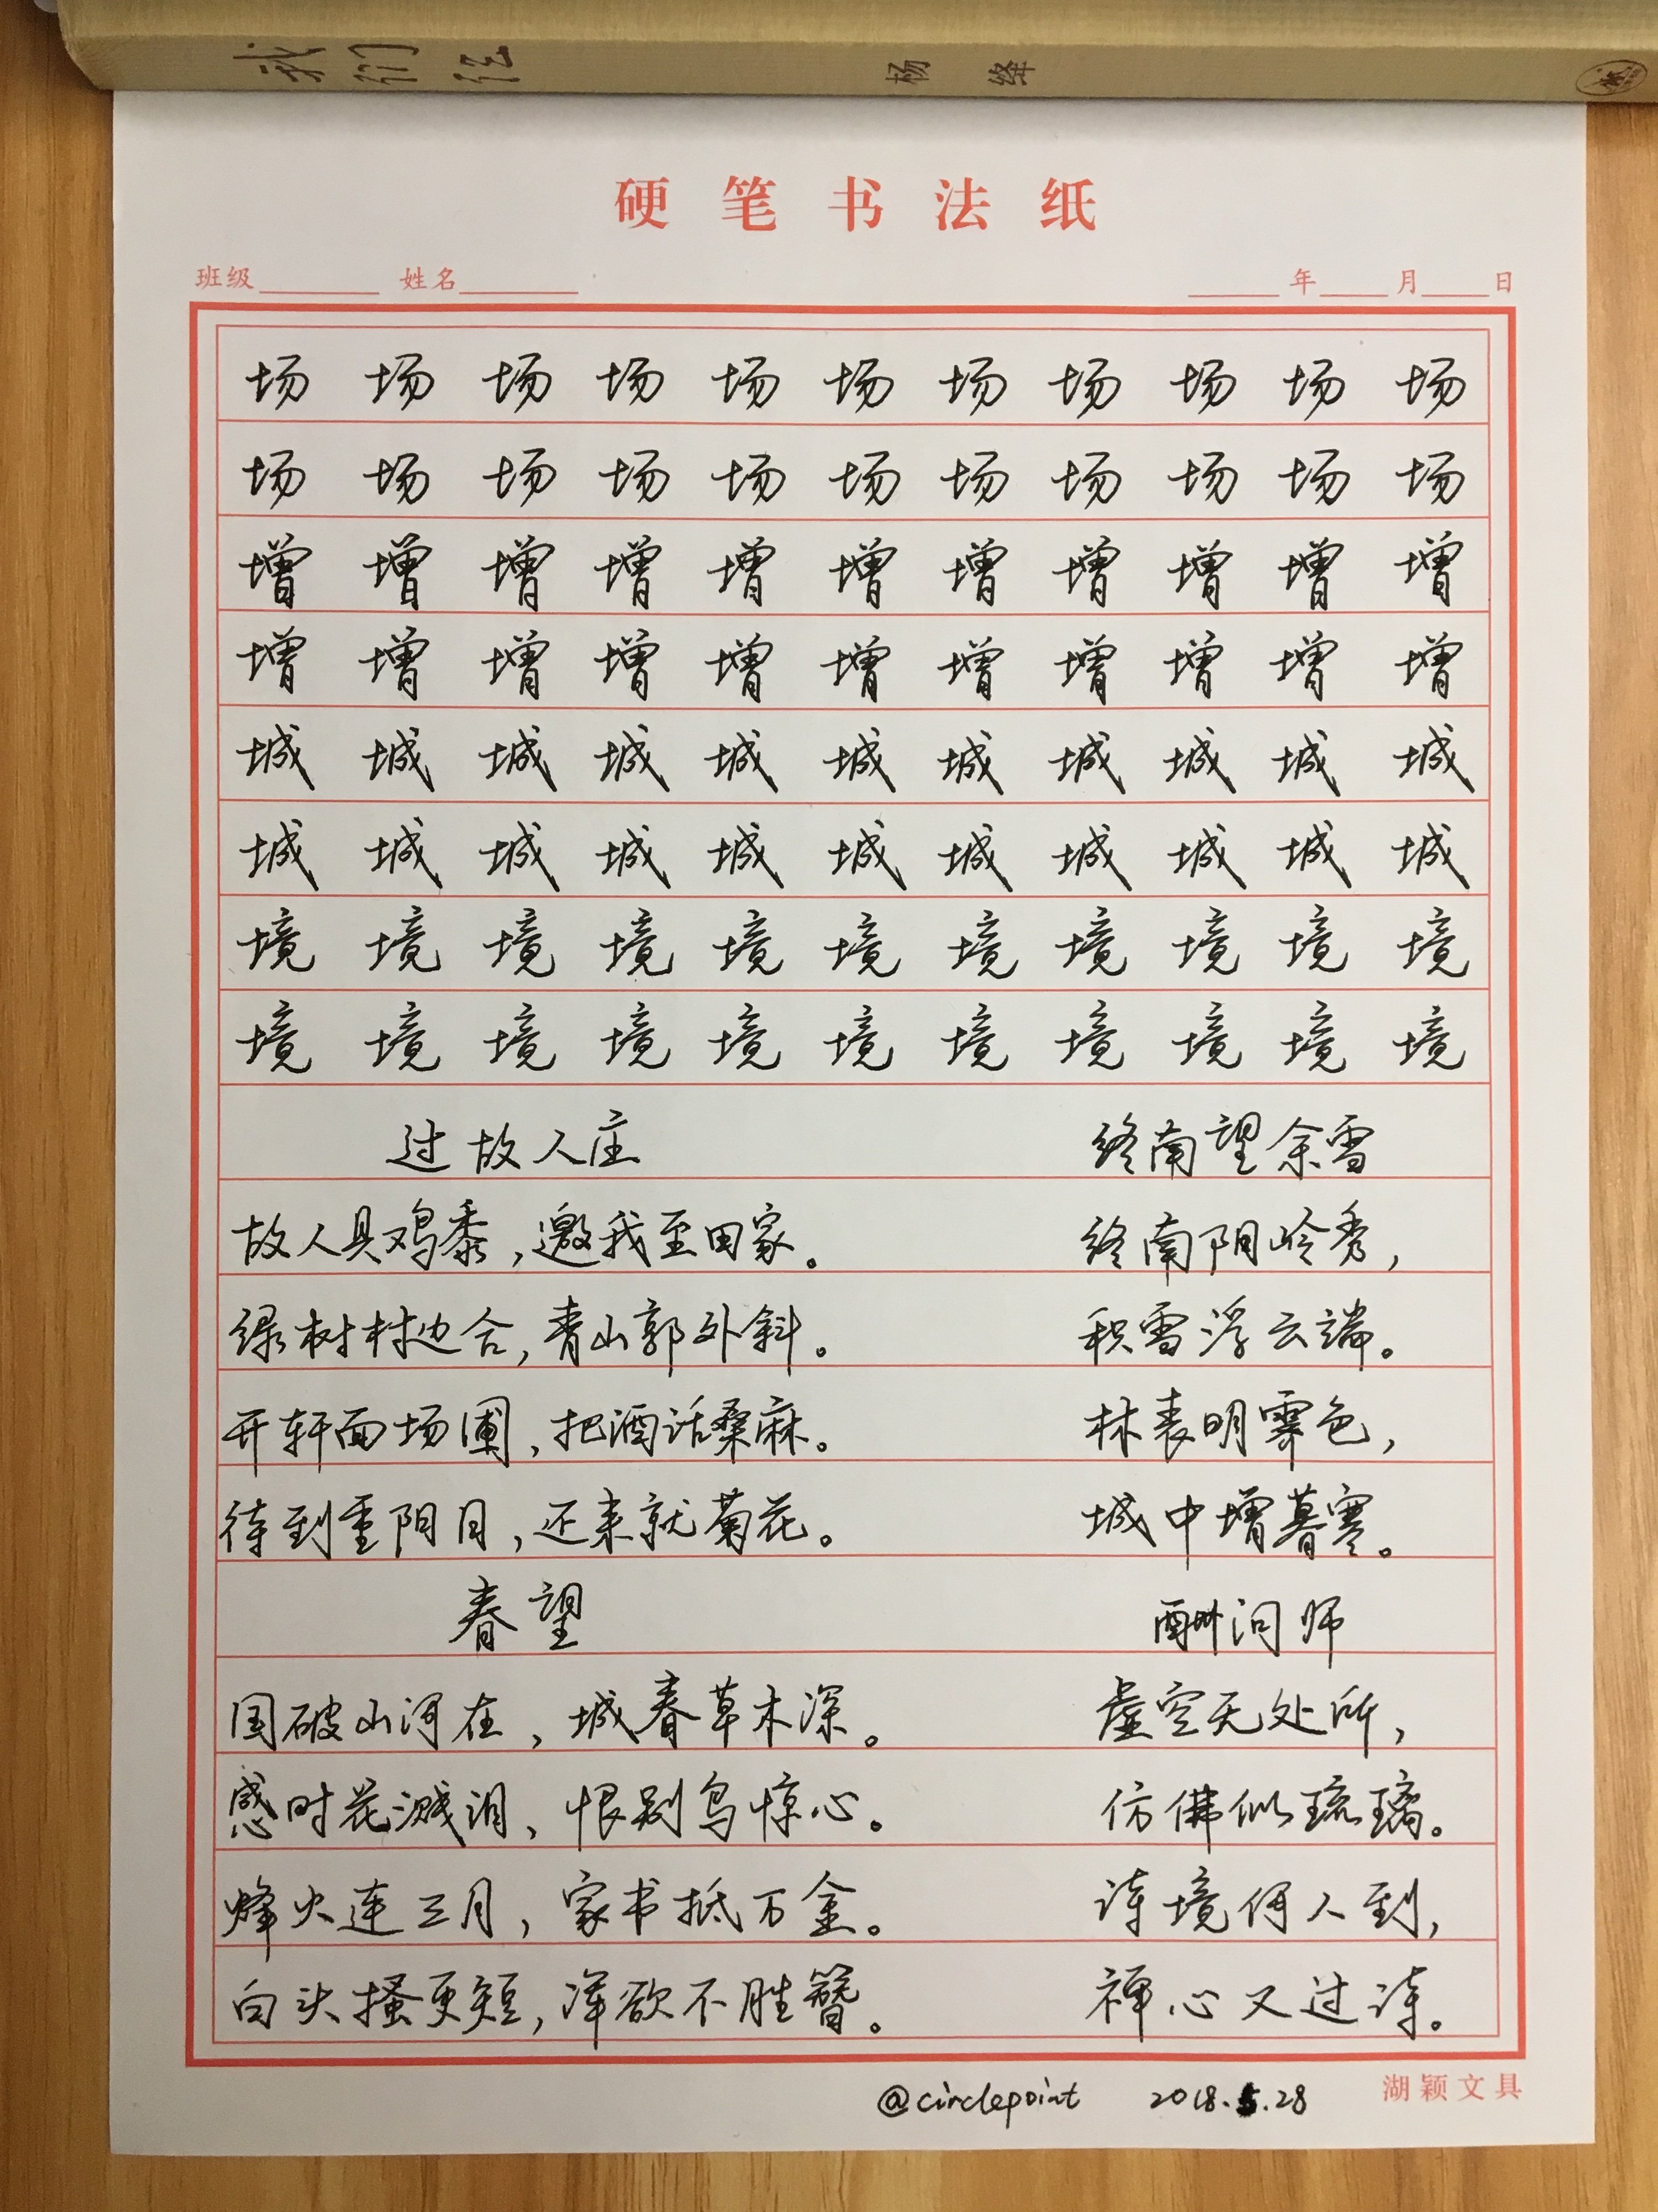 我们仨 杨绛
硬笔书法纸
班级 姓名 年 月 日
场 场 场 场 场 场 场 场 场 场 场
场 场 场 场 场 场 场 场 场 场 场
增 增 增 增 增 增 增 增 增 增 增
增 增 增 增 增 增 增 增 增 增 增
城 城 城 城 城 城 城 城 城 城 城
城 城 城 城 城 城 城 城 城 城 城
境 境 境 境 境 境 境 境 境 境 境
境 境 境 境 境 境 境 境 境 境 境
过故人庄
故人具鸡黍，邀我至田家。
绿树村边合，青山郭外斜。
开轩面场圃，把酒话桑麻。
待到重阳日，还来就菊花。
终南望余雪
终南阴岭秀，
积雪浮云端。
林表明霁色，
城中增暮寒。
春望
国破山河在，城春草木深。
感时花溅泪，恨别鸟惊心。
烽火连三月，家书抵万金。
白头搔更短，浑欲不胜簪。
酬问师
虚空无处所，
仿佛似琉璃。
诗境何人到，
禅心又过诗。
@circlepoint 2018.5.28
湖颖文具